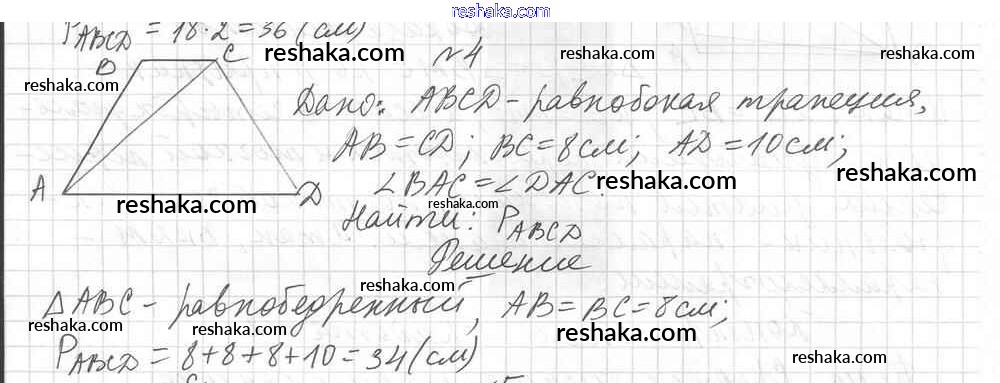 reshaka.com
P ABCD = 18·2=36(см)
B C
reshaka.com
№4
reshaka.com
reshaka.com
Дано: ABCD - равнобокая трапеция,
AB=CD; BC=8см; AD=10см;
reshaka.com
∠BAC=∠DAC.
reshaka.com
A D
reshaka.com
Найти: P ABCD
reshaka.com
Решение
reshaka.com
ΔABC - равнобедренный, AB=BC=8см;
reshaka.com
reshaka.com
reshaka.com
P ABCD = 8+8+8+10=34(см)
reshaka.com
reshaka.com